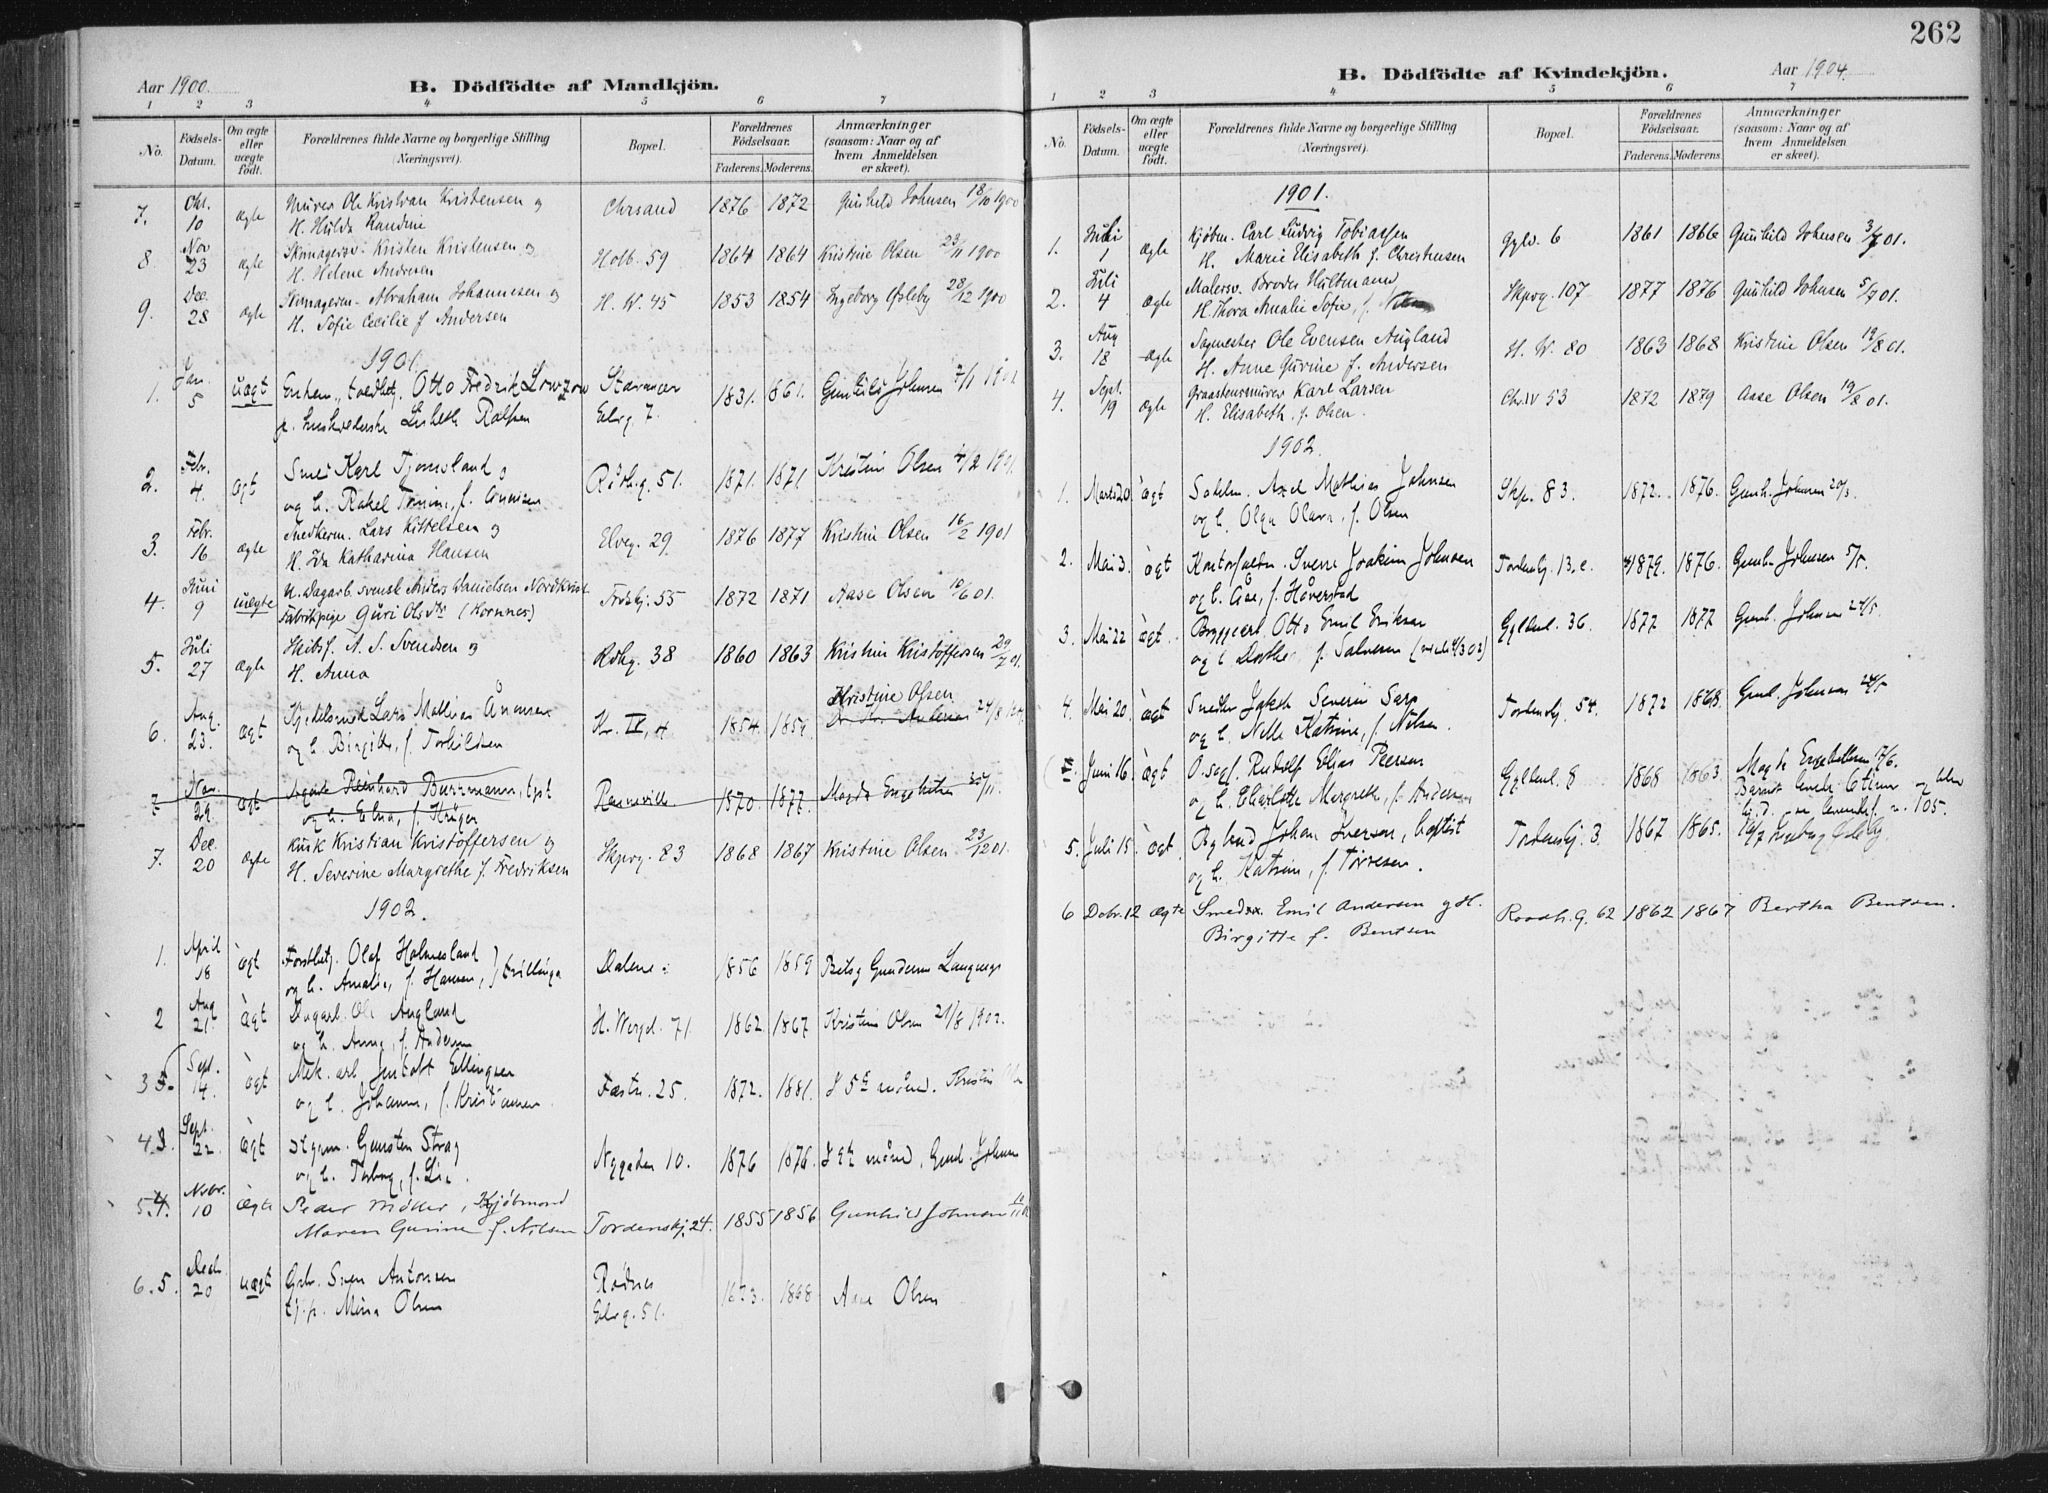 262
Aar 1900.
B. Dödfödte af Mandkjön.
1 2 3 4 5 6 7
No.
Födsels-
Datum.
Om ægte
eller
uægte
födt.
Forældrenes fulde Navne og borgerlige Stilling
(Næringsvei).
Bopæl.
Forældrenes
Födselsaar.
Faderens. Moderens.
Anmærkninger
(saasom: Naar og af
hvem Anmeldelsen
er skeet).
7. Okt. 10 ægte Murer Ole Kristian Kristensen og Chrsand 1876 1872 Gunhild Johnsen 18/10 1900
H. Hulda Randine
8. Nov 23 ægte Skomagersv. Kristen Kristensen og Holb. 59 1864 1864 Kristine Olsen 23/11 1900
H. Helene Andersen
9. Dec. 28 ægte Skomagersv. Abraham Johannesen og H. W. 45 1853 1854 Ingeborg Gisleby 28/12 1900
H. Sofie Cecilie f Andersen
1901
1. Jan. 5 uægt Enkem. toldbetj. Otto Fredrik Lowzow Stavanger 1831. 1861. Gunhild Johnsen 7/1 1901
Lisbeth Rolfsen Elvg. 7.
2. Febr. 4. ægt Smed Karl Tjomsland og Rådh.g. 51. 1871. 1871 Kristine Olsen 4/2 1901.
og h. Rakel
3. Febr. 16 ægte Snedkerm. Lars Kittelsen og Elveg. 29 1876 1877 Kristine Olsen 16/2 1901
H. Ida Katharina Hansen
4. Juni 9 uægte U. Dagarb. svensk Anders Danielsen Nordkvist Fredskj. 55 1872 1871 Aase Olsen 10/6 01.
Fabrikpige Guri Olsdtr (Kornnes)
5. Juli 27 ægte Skibsf. A. S. Svendsen og Rdhg. 38 1860 1863 Kristine Kristoffersen 29/7 01.
H. Anna
6. Aug. 23. ægt Kjedelsmed Lars Mathias Ånonsen Kr. IV, 4 1854. Kristine Olsen 24/8
og h. Birgitte, f. Torkildsen
7 Nov. 29. ægt Reinhard Burzmann, bpt 1870. 1877. Magda Engebretsen 30/11.
og h. Elna, f. Krüger
7. Dec. 20 ægte Kusk Kristian Kristoffersen og Skpvg. 83 1868 1867 Kristine Olsen 23/12 01.
H. Severine Margrethe f. Fredriksen
1902.
1. April 18 ægt Forstbetj. Olaf Holmesland Dalene 1856 1859 Betsy Gundersen
og h. Amalie, f. Hansen, } tvillinge
2 Aug 21 Ægt Dagarb. Ole Augland H. Wergel. 71. 1862. 1867 Kristine Olsen 21/8 1902.
og h. Anne, f. Andersen
3 Sept. 14. ægt Mek. arb. Ellingsen Fæstn. 25. 1872. 1881. 5 måned. Kristine
og h. Johanne, f. Kristiansen.
4 Sept. 22 ægt Gunsten Stray Nygaden 10. 1876 1876. måned. Gunh. Johnsen
og h. Torborg, f. Lie.
5 Nvbr. 10 ægte Peder Møller, Kjøbmand Tordenskj. 24. 1855 1856 Gunhild Johnsen 10/11
Maren Gurine f. Nilsen
6. 5. Decb. 20 uægt Grb. Sven Antonsen Rødnes 1868 Aase Olsen
tj.p. Mina Olsen Elvg. 51.
B. Dödfödte af Kvindekjön.
Aar 1904.
1 2 3 4 5 6 7
No.
Födsels-
Datum.
Om ægte
eller
uægte
födt.
Forældrenes fulde Navne og borgerlige Stilling
(Næringsvei).
Bopæl.
Forældrenes
Födselsaar.
Faderens. Moderens.
Anmærkninger
(saasom: Naar og af
hvem Anmeldelsen
er skeet).
1901.
1. Juli 1 ægte Kjöbm. Carl Ludvig Tobiassen Gylv. 6 1861 1866 Gunhild Johnsen 3/7 01.
H. Marie Elisabeth f. Christensen
2. Juli 4 ægte Malersv. Broder Hultmann Skpvg. 107 1877 1876 Gunhild Johnsen 5/7 01.
H. Thora Amalie Sofie, f.
3. Aug 18 ægte Sagmester Ole Evensen Augland H. W. 80 1863 1868 Kristine Olsen 19/8 01.
H. Anne Gurine f. Andersen
4. Sept. 19 ægte Graastensmurer Karl Larsen Chr. IV 53 1872 1879 Aase Olsen 19/8 01.
H. Elisabeth, f. Olsen.
1902.
1. Marts 20 ægt Axel Mathias Johnsen Skp. 83. 1872. 1876. Gunh. Johnsen 20/3.
og h. Olga Olava, f. Olsen
2. Mai 3. ægt Kontorfuldm. Sverre Joakim Johnsen Tordenskj. 13. c. 1879. 1876. Gunh. Johnsen 5/5.
og h. Åse, f. Håverstad
3. Mai 22 ægt. Bryggearb. Otto Emil Eriksen Gyldenl. 36. 1877 1877 Gunh. Johnsen 24/5
og h. Dorthe f. Salvesen
4. Mai 20. ægt Snedker Jakob Severin Sarp Tordenskj. 54. 1872 1868. Gunh. Johnsen 24/5
og h. Nelle Katrine, f. Nilsen.
Juni 16 ægt O.sagf. Rudolf Elias Peersen Gyldenl. 8 1868 1863. Magda Engebretsen 17/6.
og h. Charlotte Margrethe, f. Andersen Barnet levede 6 timer
5. Juli 15. ægt Johan Iversen, baptist Tordenskj. 3. 1867 1865. 16/7 Ingeborg Gisleby.
og h. Katrine, f. Tørresen.
6 Dcbr. 12 ægte Smed Emil Andersen og H. Raadh. g. 62 1862 1867 Bertha Bentsen.
Birgitte f. Bentsen